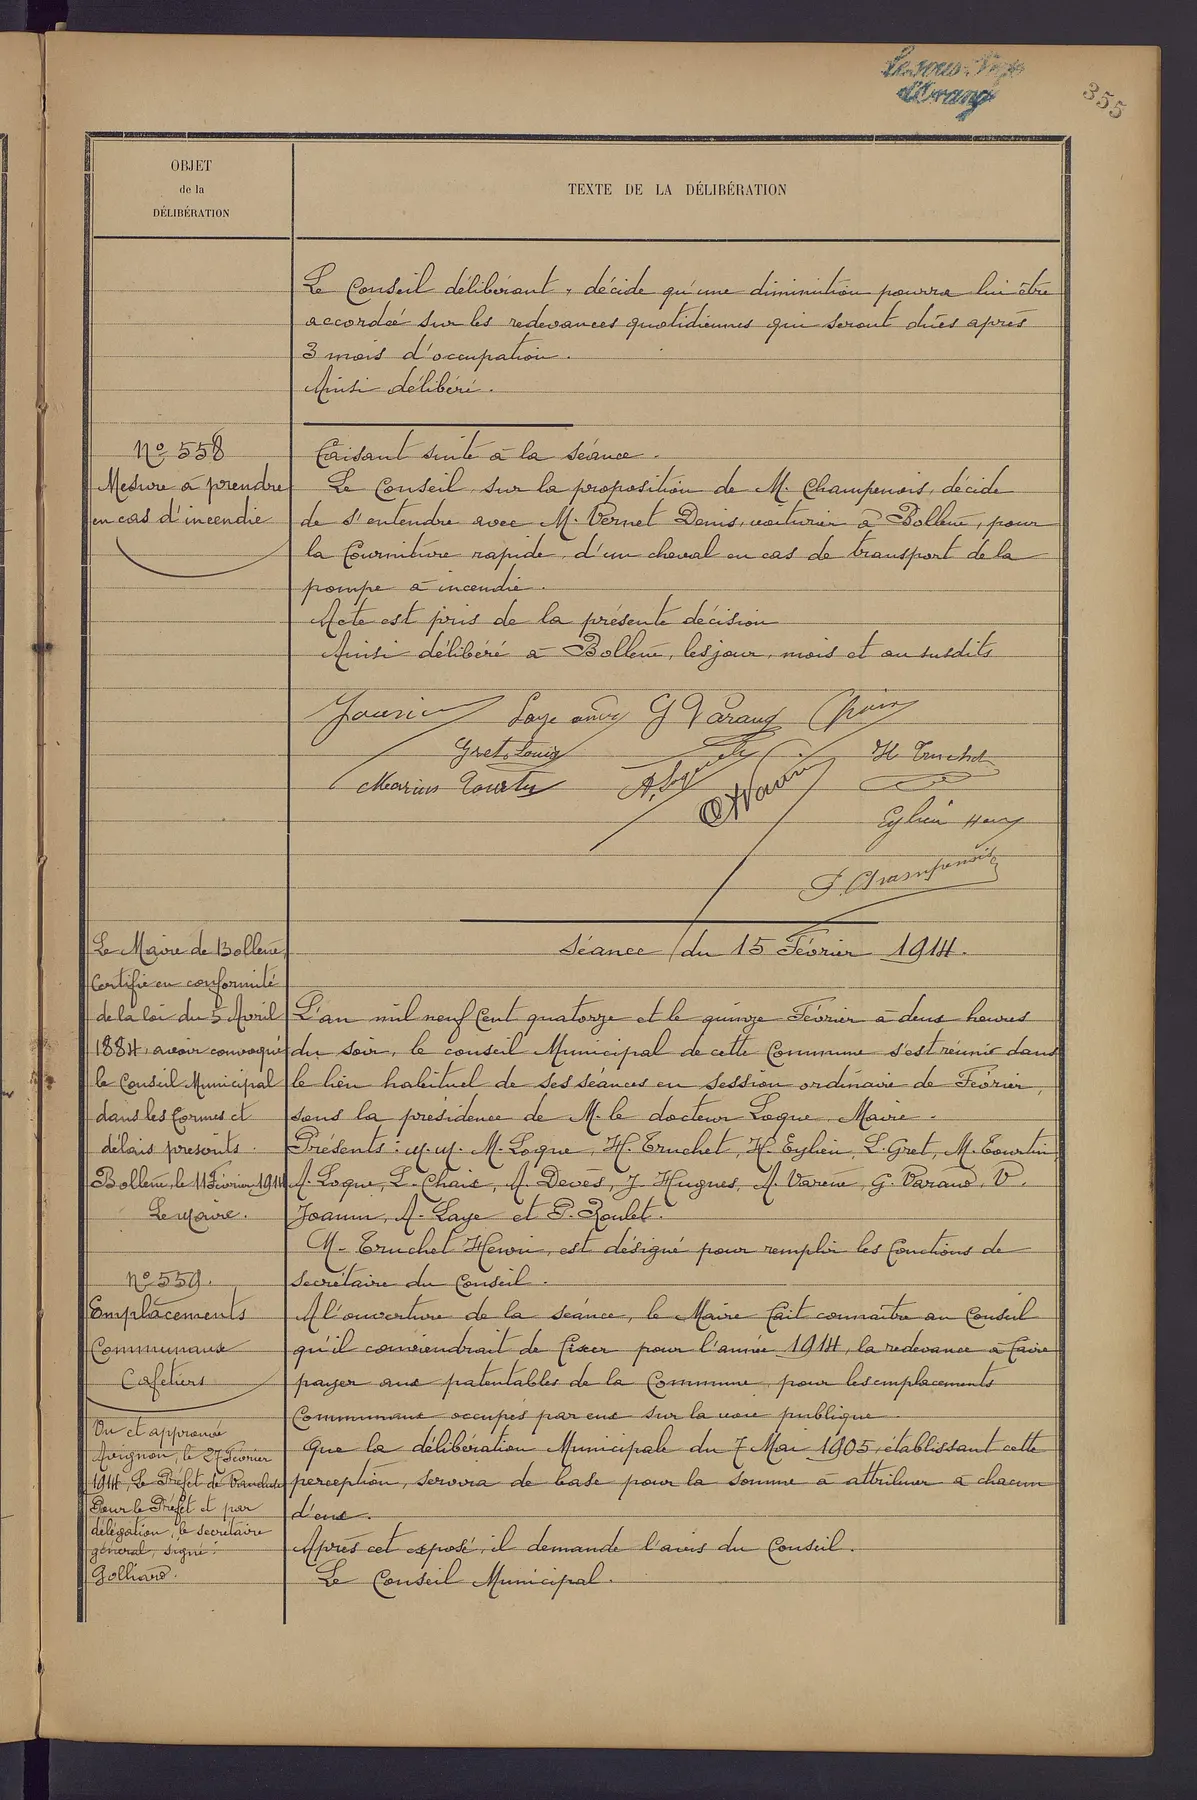 355
OBJET
de la
DÉLIBÉRATION
TEXTE DE LA DÉLIBÉRATION
Le Conseil délibérant, décide qu'une diminution pourra lui être
accordée sur les redevances quotidiennes qui seront dûes après
3 mois d'occupation.
Ainsi délibéré.
No 558
Mesure à prendre
en cas d'incendie
Faisant suite à la séance.
Le Conseil, sur la proposition de M. Champenois, décide
de s'entendre avec M. Vernet Denis, voiturier à Bollène, pour
la fourniture rapide, d'un cheval en cas de transport de la
pompe à incendie.
Acte est pris de la présente décision
Ainsi délibéré à Bollène, les jour, mois et an susdits
Joanin Laye G Varaud Chaix
Gret Louis
H Truchet
Marius Tourtin A. Loque
Eylieu Henry
P. Champenois
Le Maire de Bollène,
certifie en conformité
de la loi du 5 Avril
1884, avoir convoqué
le Conseil Municipal
dans les formes et
délais prescrits.
Bollène, le 11 Février 1914
Le Maire.
Séance du 15 Février 1914.
L'an mil neuf cent quatorze et le quinze Février à deux heures
du soir, le conseil Municipal de cette Commune s'est réunir dans
le lieu habituel de ses séances en session ordinaire de Février,
sous la présidence de M. le docteur Loque, Maire.
Présents: M.M. M. Loque, H. Truchet, H. Eylieu, L. Gret, M. Tourtin,
A. Loque, L. Chaix, A. Devès, J. Hugues, A. Varène, G. Varaud, V.
Joanin, A. Laye et P. Roulet.
M. Truchet Henri, est désigné pour remplir les fonctions de
secrétaire du Conseil.
No 559.
Emplacements
Communaux
Cafetiers
A l'ouverture de la séance, le Maire fait connaître au Conseil
qu'il conviendrait de fixer pour l'année 1914, la redevance à faire
payer aux patentables de la Commune, pour les emplacements
Communaux occupés par eux sur la voie publique.
Que la délibération Municipale du 7 Mai 1905, établissant cette
perception, servira de base pour la somme à attribuer à chacun
d'eux.
Après cet exposé, il demande l'avis du Conseil.
Le Conseil Municipal.
Vu et approuvé
Avignon, le 27 Février
1914, Le Préfet de Vaucluse
Pour le Préfet et par
délégation, le secrétaire
général, signé:
Golliard.